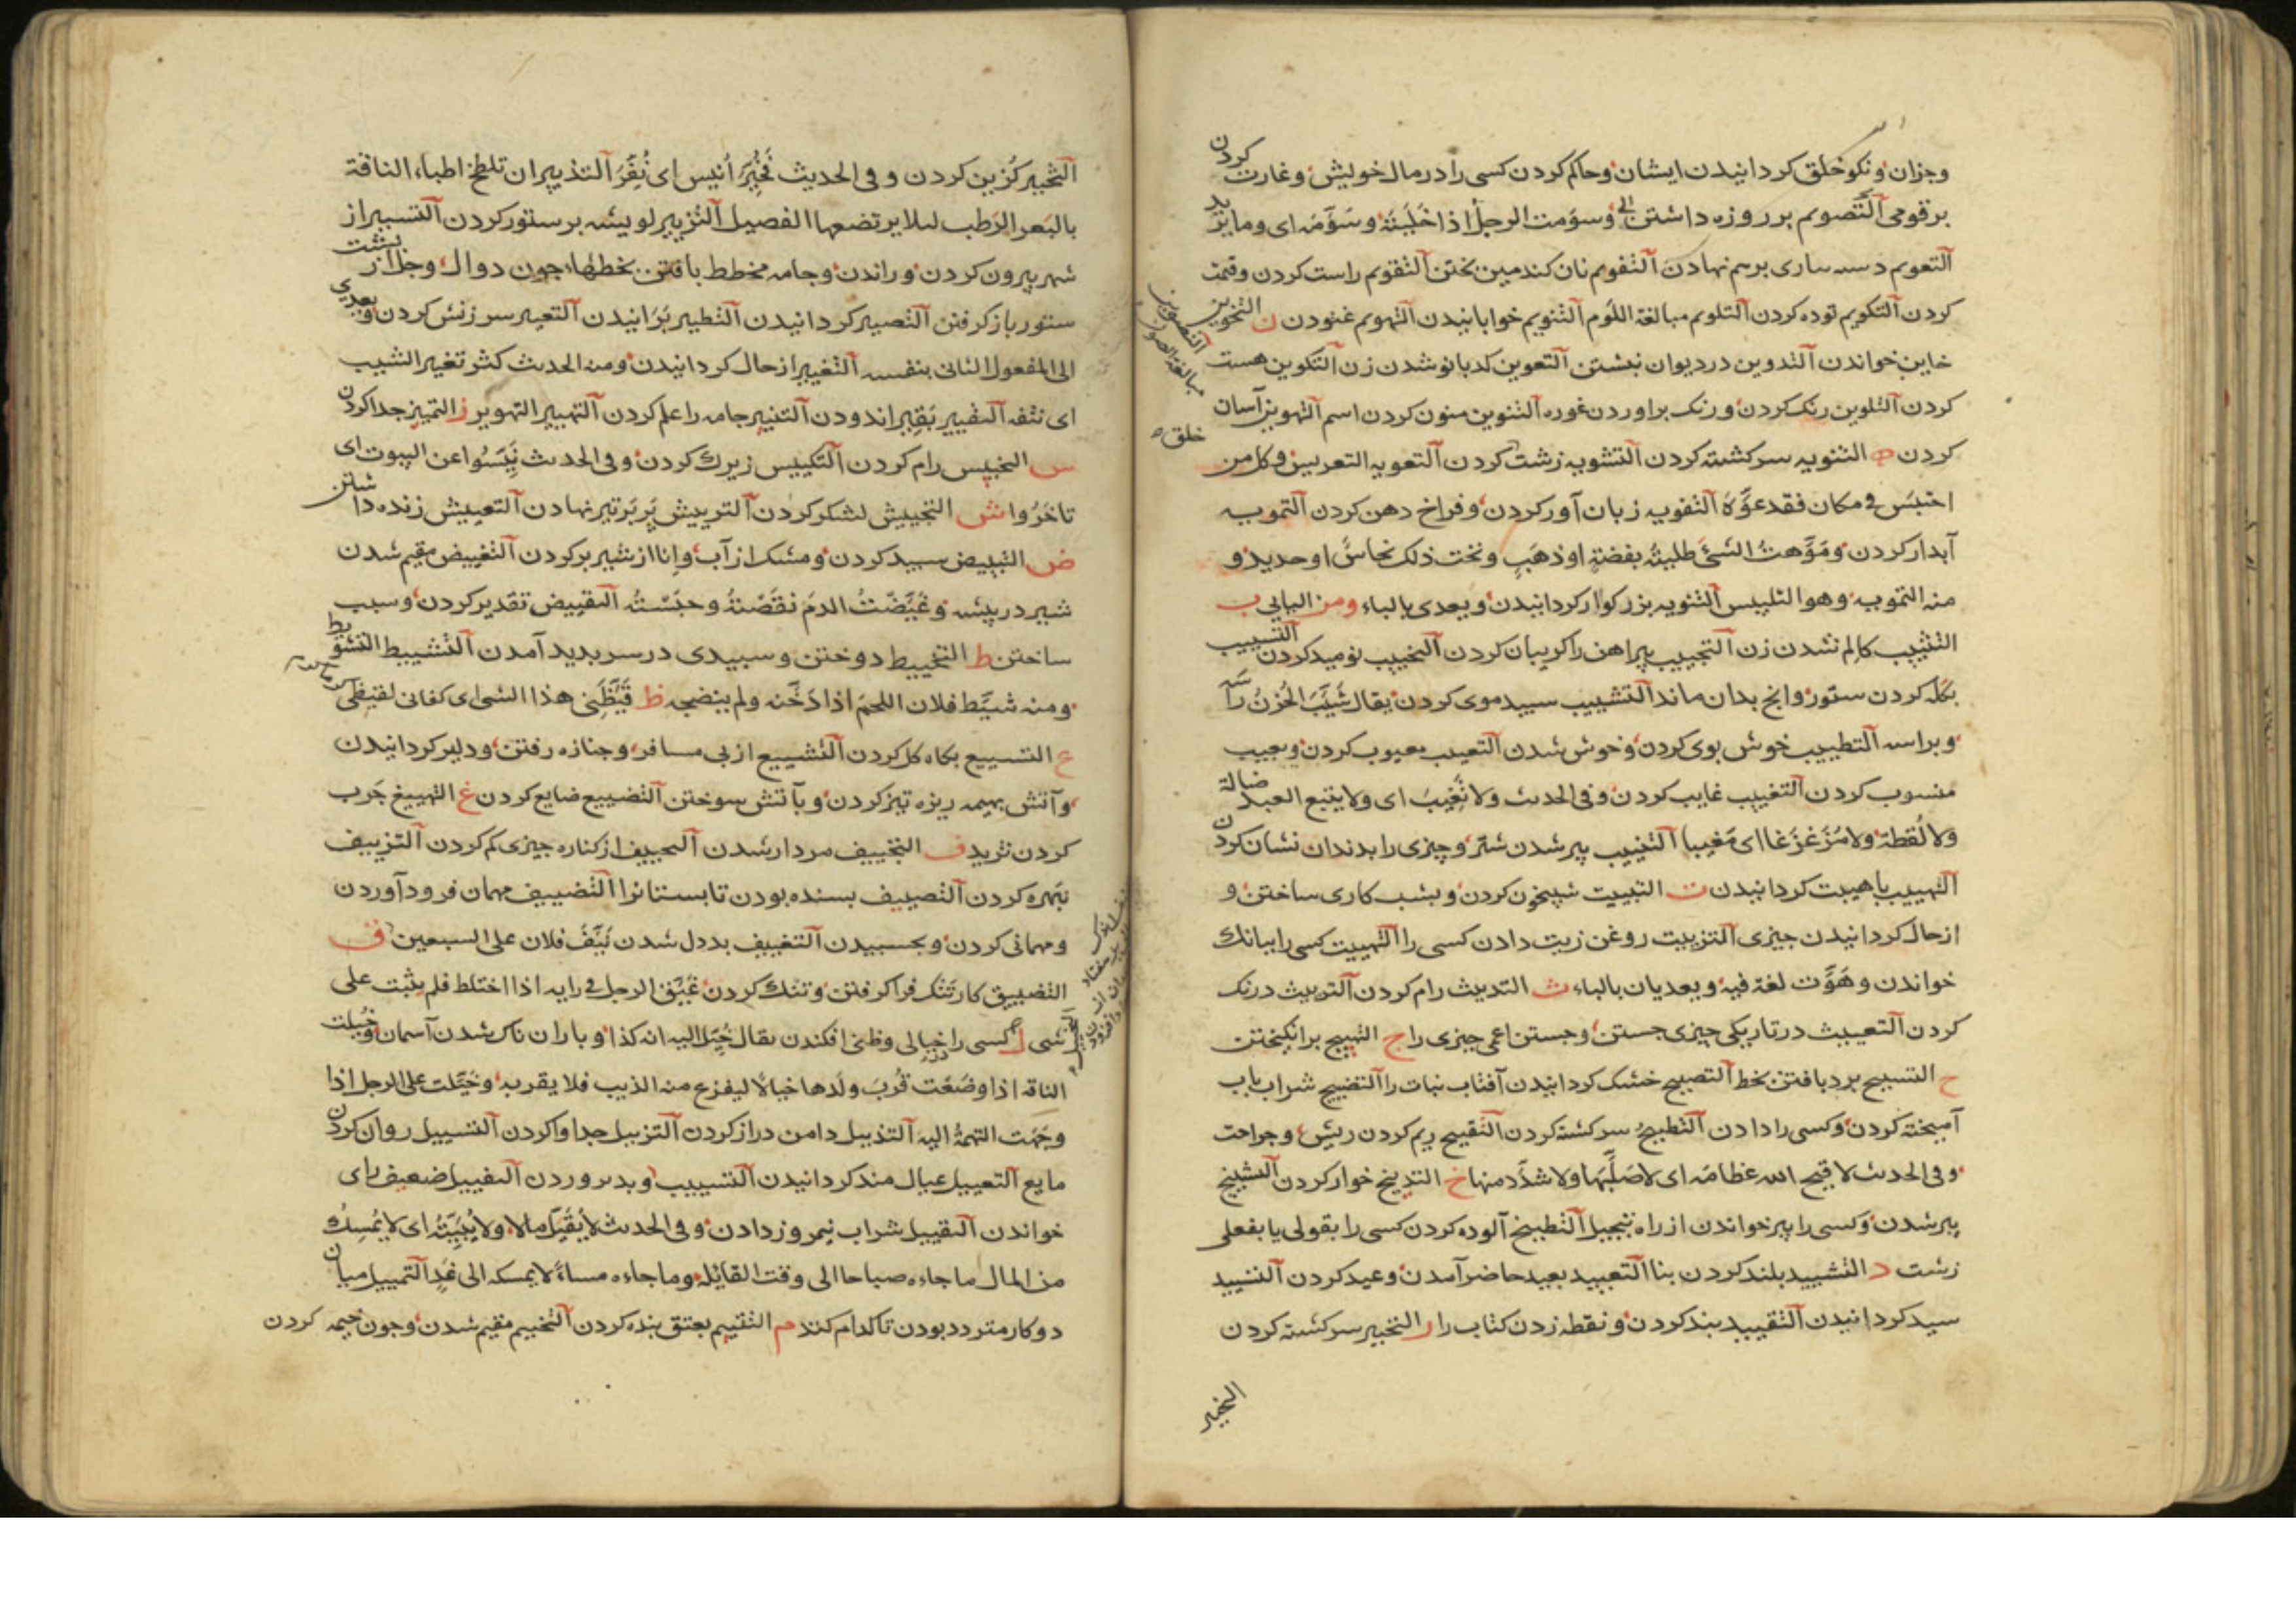 وجزان ونکو خلق کردانیدن ایشان وحاکم کردن کسی را درمال خویش وغارت کردن
برقومی التصویم بر روزه داشتن وسومت الرجل اذا خلیته وسومه ای وما یرید
التعویم دسه ساری برسم نهادن التفویم نان کندمین بختن التقویم راست کردن وقیمت
کردن التکویم توده کردن التلویم مبالغة اللوم التنویم خوابانیدن التهویم غنودن ن التخوین
خاین خواندن التدوین دردیوان نبشتن التعوین کدبانو شدن زن التکوین هست
کردن التلوین رنک کردن ورنک براوردن غوره التنوین منون کردن اسم التهوین آسان
کردن ه التتویه سرکشته کردن التشویه زشت کردن التعویه التعریس وکل من
احتبس فی مکان فقد عوه التفویه زبان آور کردن وفراخ دهن کردن التمویه
آبدار کردن وموهت الشئ طلیته بفضة او ذهب وتحت ذلک نحاس او حدید و
منه التمویه وهو التلبیس التنویه بزرکوار کردانیدن ویعدی بالباء ومن الیایی ب
التثییب کالم نشدن زن التجییب پیراهن را کریبان کردن التخییب نومید کردن التسییب
بکله کردن ستور وانچ بدان ماند التشییب سپید موی کردن یقال شیب الحزن راسه
وبراسه التطییب خوش بوی کردن وخوش شدن التعییب معیوب کردن وبعیب
منسوب کردن التغییب غایب کردن وفی الحدیث ولا تغیب ای ولا یتبع العبد ضالة
ولا لقطة ولا مزغزغا ای مغیبا التنییب پیر شدن شتر وچیزی را بدندان نشان کردن
التهییب باهیبت کردانیدن ت التبییت شبیخون کردن وبشب کاری ساختن و
ازحال کردانیدن چیزی التزییت روغن زیت دادن کسی را التهییت کسی را ببانک
خواندن وهوت لغة فیه ویعدیان بالباء ث التدییث رام کردن التریث درنک
کردن التعییث درتاریکی چیزی جستن وجستن اعمی چیزی را ج التهییج برانکیختن
ح التسییح برد بافتن بخط التصییح خشک کردانیدن آفتاب نبات را التضییح شراب باب
آمیخته کردن وکسی را دادن التطییح سرکشته کردن التقییح ریم کردن ریش وجراحت
وفی الحدیث لا قیح الله عظامه ای لا صلبها ولا شدد منها خ التدییخ خوار کردن التشییخ
پیر شدن وکسی را پیر خواندن از راه تبجیل التطییخ آلوده کردن کسی را بقولی یا بفعلی
زشت د التشیید بلند کردن بنا التعیید بعید حاضر آمدن وعید کردن
سید کردانیدن التقیید بند کردن ونقطه زدن کتاب را ر التحییر سرکشته کردن
التخییر
التخییر کزین کردن وفی الحدیث فخیر انیس ای نفر التذییر ان تلطخ اطباء الناقة
بالبعر الرطب لیلا یرتضعها الفصیل التزییر لویشه بر ستور کردن التسییر از
شهر بیرون کردن وراندن وجامه مخطط بافتن بخطها چون دوال وجل از پشت
ستور باز کرفتن التصییر کردانیدن التطییر پرانیدن التعییر سرزنش کردن ویعدی
الی المفعول الثانی بنفسه التغییر از حال کردانیدن ومنه الحدیث کثر تغییر الشیب
ای نتفه التقییر بقیر اندودن التنییر جامه را علم کردن التهییر التهویر ز التمییز جدا کردن
س التخییس رام کردن التکییس زیرک کردن وفی الحدیث تیسوا عن البیوت ای
تاخروا ش التجییش لشکر کردن التریش پر بر تیر نهادن التعییش زنده داشتن
ض التبییض سپید کردن ومشک از آب وانا از شیر پر کردن التغییض مقیم شدن
شیر در بیشه وغیضت الدم نقصته وحبسته التقییض تقدیر کردن وسبب
ساختن ط التخییط دوختن وسپیدی درسر پدید آمدن التشییط التشویط
ومنه شیط فلان اللحم اذا دخنه ولم ینضجه ظ قیظنی هذا الشی ای کفانی لقیظی
ع التسییع بکاه کل کردن التشییع از پی مسافر وجنازه رفتن ودلیر کردانیدن
وآتش بهیمه ریزه تیز کردن وبآتش سوختن التضییع ضایع کردن غ التهییغ چرب
کردن ثرید ف التجییف مردار شدن التحییف از کناره چیزی کم کردن التزییف
نبهره کردن التصییف بسنده بودن تابستانرا التضییف مهمان فرود آوردن
ومهمانی کردن وبحسبیدن التغییف بددل شدن نیف فلان علی السبعین ق
التضییق کار تنک فرا کرفتن وتنک کردن غیق الرجل فی رایه اذا اختلط فلم یثبت علی
شی ل کسی را خیالی وظنی افکندن یقال خیل الیه انه کذا وباران ناک شدن آسمان وخیلت
الناقه اذا وضعت قرب ولدها خیالا لیفزع منه الذیب فلا یقربه وخیلت علی الرجل اذا
وجهت التهمة الیه التذییل دامن دراز کردن التزییل جدا وا کردن التسییل روان کردن
مایع التعییل عیال مند کردانیدن التسییب التفییل ضعیف رای
خواندن التقییل شراب نیمروز دادن وفی الحدیث لا یقیل مالا ولا یبیته ای لا یمسک
من المال ما جاءه صباحا الی وقت القائلة وما جاءه مساء لا یمسکه الی غد التمییل میان
دو کار متردد بودن تا کدام کند م التتییم بعتق بنده کردن التخییم مقیم شدن وچون خیمه کردن